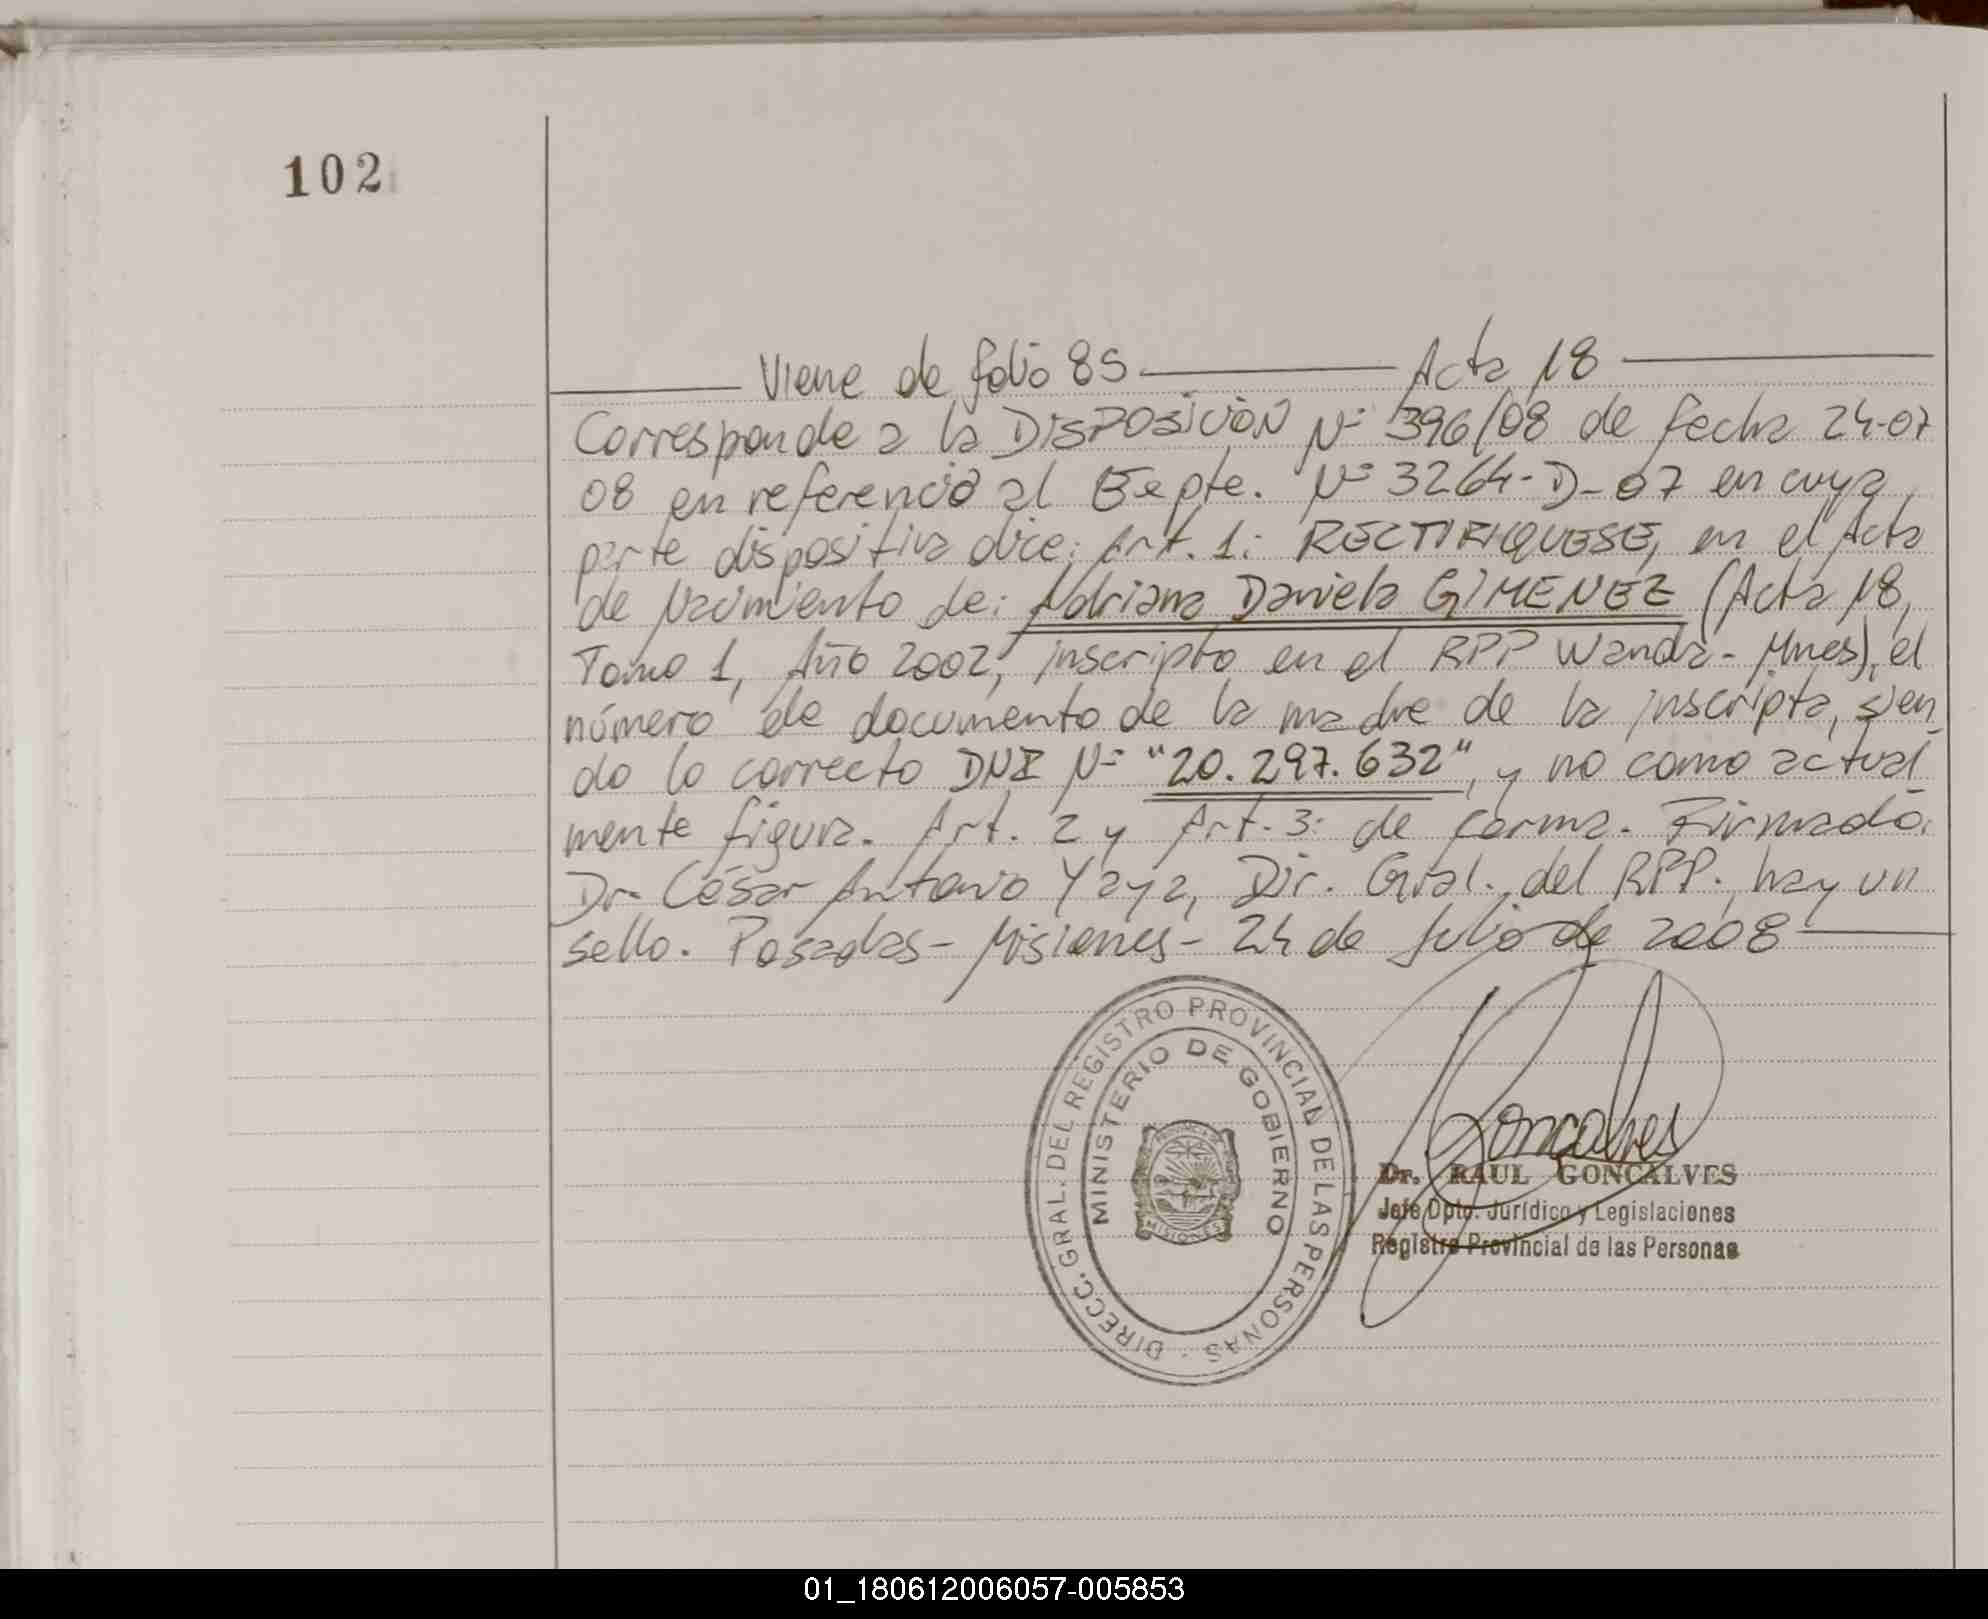 102
Viene de folio 85 Acta 18
Corresponde a la DISPOSICIÓN Nº 396/08 de fecha 24-07
08 en referencia al Expte. Nº 3264-D-07 en cuya
parte dispositiva dice: Art. 1: RECTIFIQUESE, en el Acta
de Nacimiento de: Adriana Daniela GIMENEZ (Acta 18,
Tomo 1, Año 2002, inscripto en el RPP Wanda-Mnes), el
número de documento de la madre de la inscripta, sien
do lo correcto DNI Nº "20.297.632", y no como actual
mente figura. Art. 2 y Art. 3: de forma. Firmado:
Dr. César Antonio Yaya, Dir. Gral. del RPP., hay un
sello. Posadas- Misiones- 24 de Julio de 2008
DIRECC. GRAL. DEL REGISTRO PROVINCIAL DE LAS PERSONAS -
MINISTERIO DE GOBIERNO
PROVINCIA DE
MISIONES
Goncalves
Dr. RAUL GONCALVES
Jefe Dpto. Jurídico y Legislaciones
Registro Provincial de las Personas
01_180612006057-005853